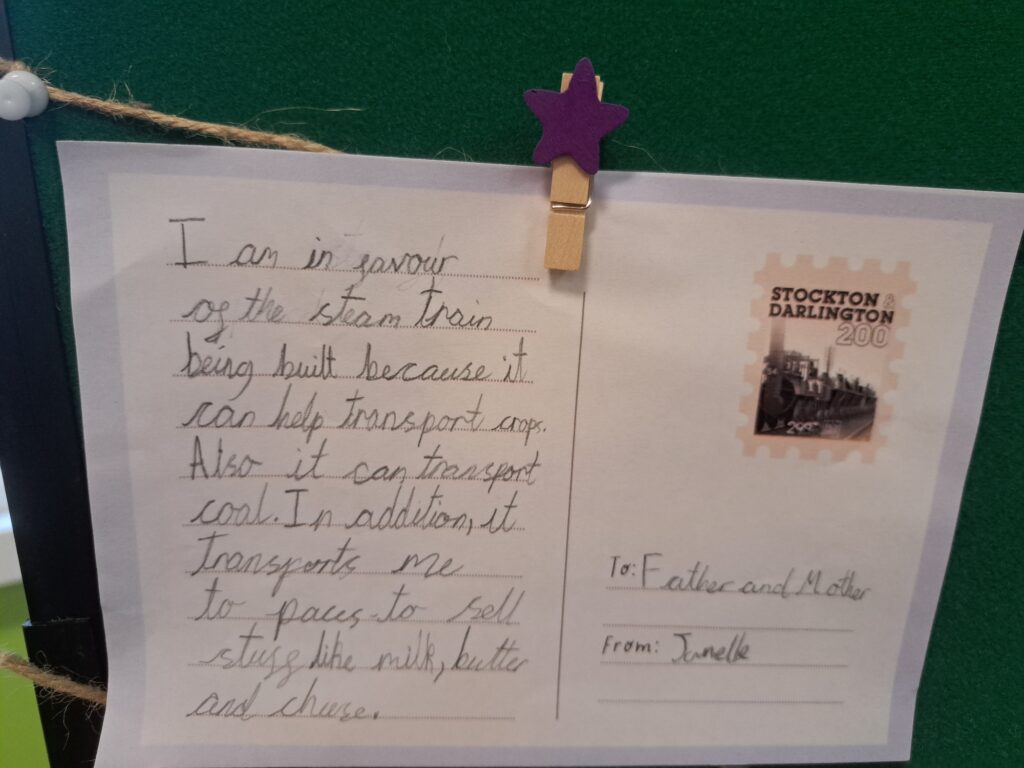 I am in favour
of the steam train
being built because it
can help transport crops.
Also it can transport
coal. In addition, it
transports me
to paces to sell
stuff like milk, butter
and cheese.
STOCKTON &
DARLINGTON
200
To: Father and Mother
From: Janelle